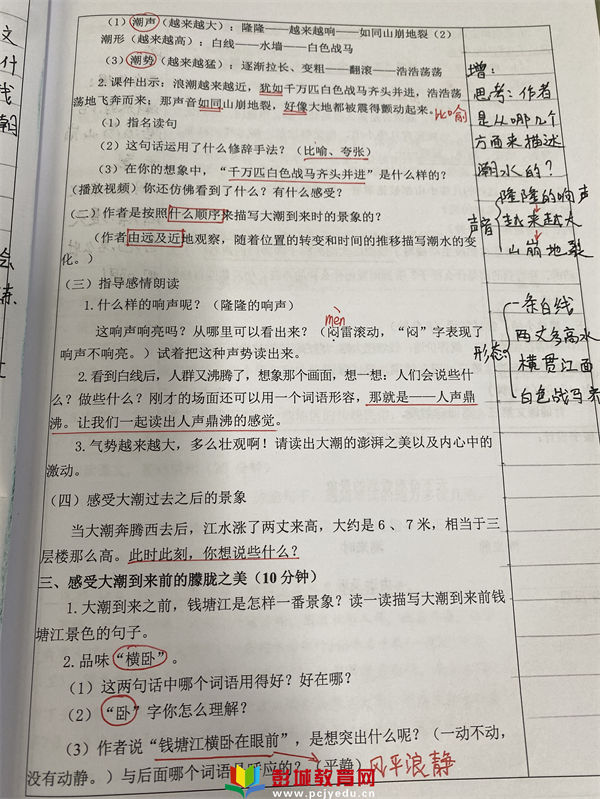 （1）潮声（越来越大）：隆隆——越来越响——如同山崩地裂（2）
潮形（越来越高）：白线——水墙——白色战马
（3）潮势（越来越猛）：逐渐拉长、变粗——翻滚——浩浩荡荡
2.课件出示：浪潮越来越近，犹如千万匹白色战马齐头并进，浩浩荡
荡地飞奔而来；那声音如同山崩地裂，好像大地都被震得颤动起来。
比喻
（1）指名读句
（2）这句话运用了什么修辞手法？（比喻、夸张）
（3）在你的想象中，“千万匹白色战马齐头并进”是什么样的？
（播放视频）你还仿佛看到了什么？有什么感受？
（二）作者是按照什么顺序来描写大潮到来时的景象的？
（作者由远及近地观察，随着位置的转变和时间的推移描写潮水的变
化。）
（三）指导感情朗读
1.什么样的响声呢？（隆隆的响声）
mèn
这响声响亮吗？从哪里可以看出来？（闷雷滚动，“闷”字表现了
响声不响亮。）试着把这种声势读出来。
2.看到白线后，人群又沸腾了，想象那个画面，想一想：人们会说些什
么？做些什么？刚才的场面还可以用一个词语形容，那就是——人声鼎
沸。让我们一起读出人声鼎沸的感觉。
3.气势越来越大，多么壮观啊！请读出大潮的澎湃之美以及内心中的
激动。
（四）感受大潮过去之后的景象
当大潮奔腾西去后，江水涨了两丈来高，大约是6、7米，相当于三
层楼那么高。此时此刻，你想说些什么？
三、感受大潮到来前的朦胧之美（10分钟）
1.大潮到来之前，钱塘江是怎样一番景象？读一读描写大潮到来前钱
塘江景色的句子。
2.品味“横卧”。
（1）这两句话中哪个词语用得好？好在哪？
（2）“卧”字你怎么理解？
（3）作者说“钱塘江横卧在眼前”，是想突出什么呢？（一动不动，
没有动静。）与后面哪个词语呼应的？（平静）风平浪静
增：
思考：作者
是从哪几个
方面来描述
潮水的？
声音
隆隆的响声
越来越大
山崩地裂
形态
一条白线
两丈多高水
横贯江面
白色战马来
文
什
朝
彭城教育网
www.pcjyedu.cn